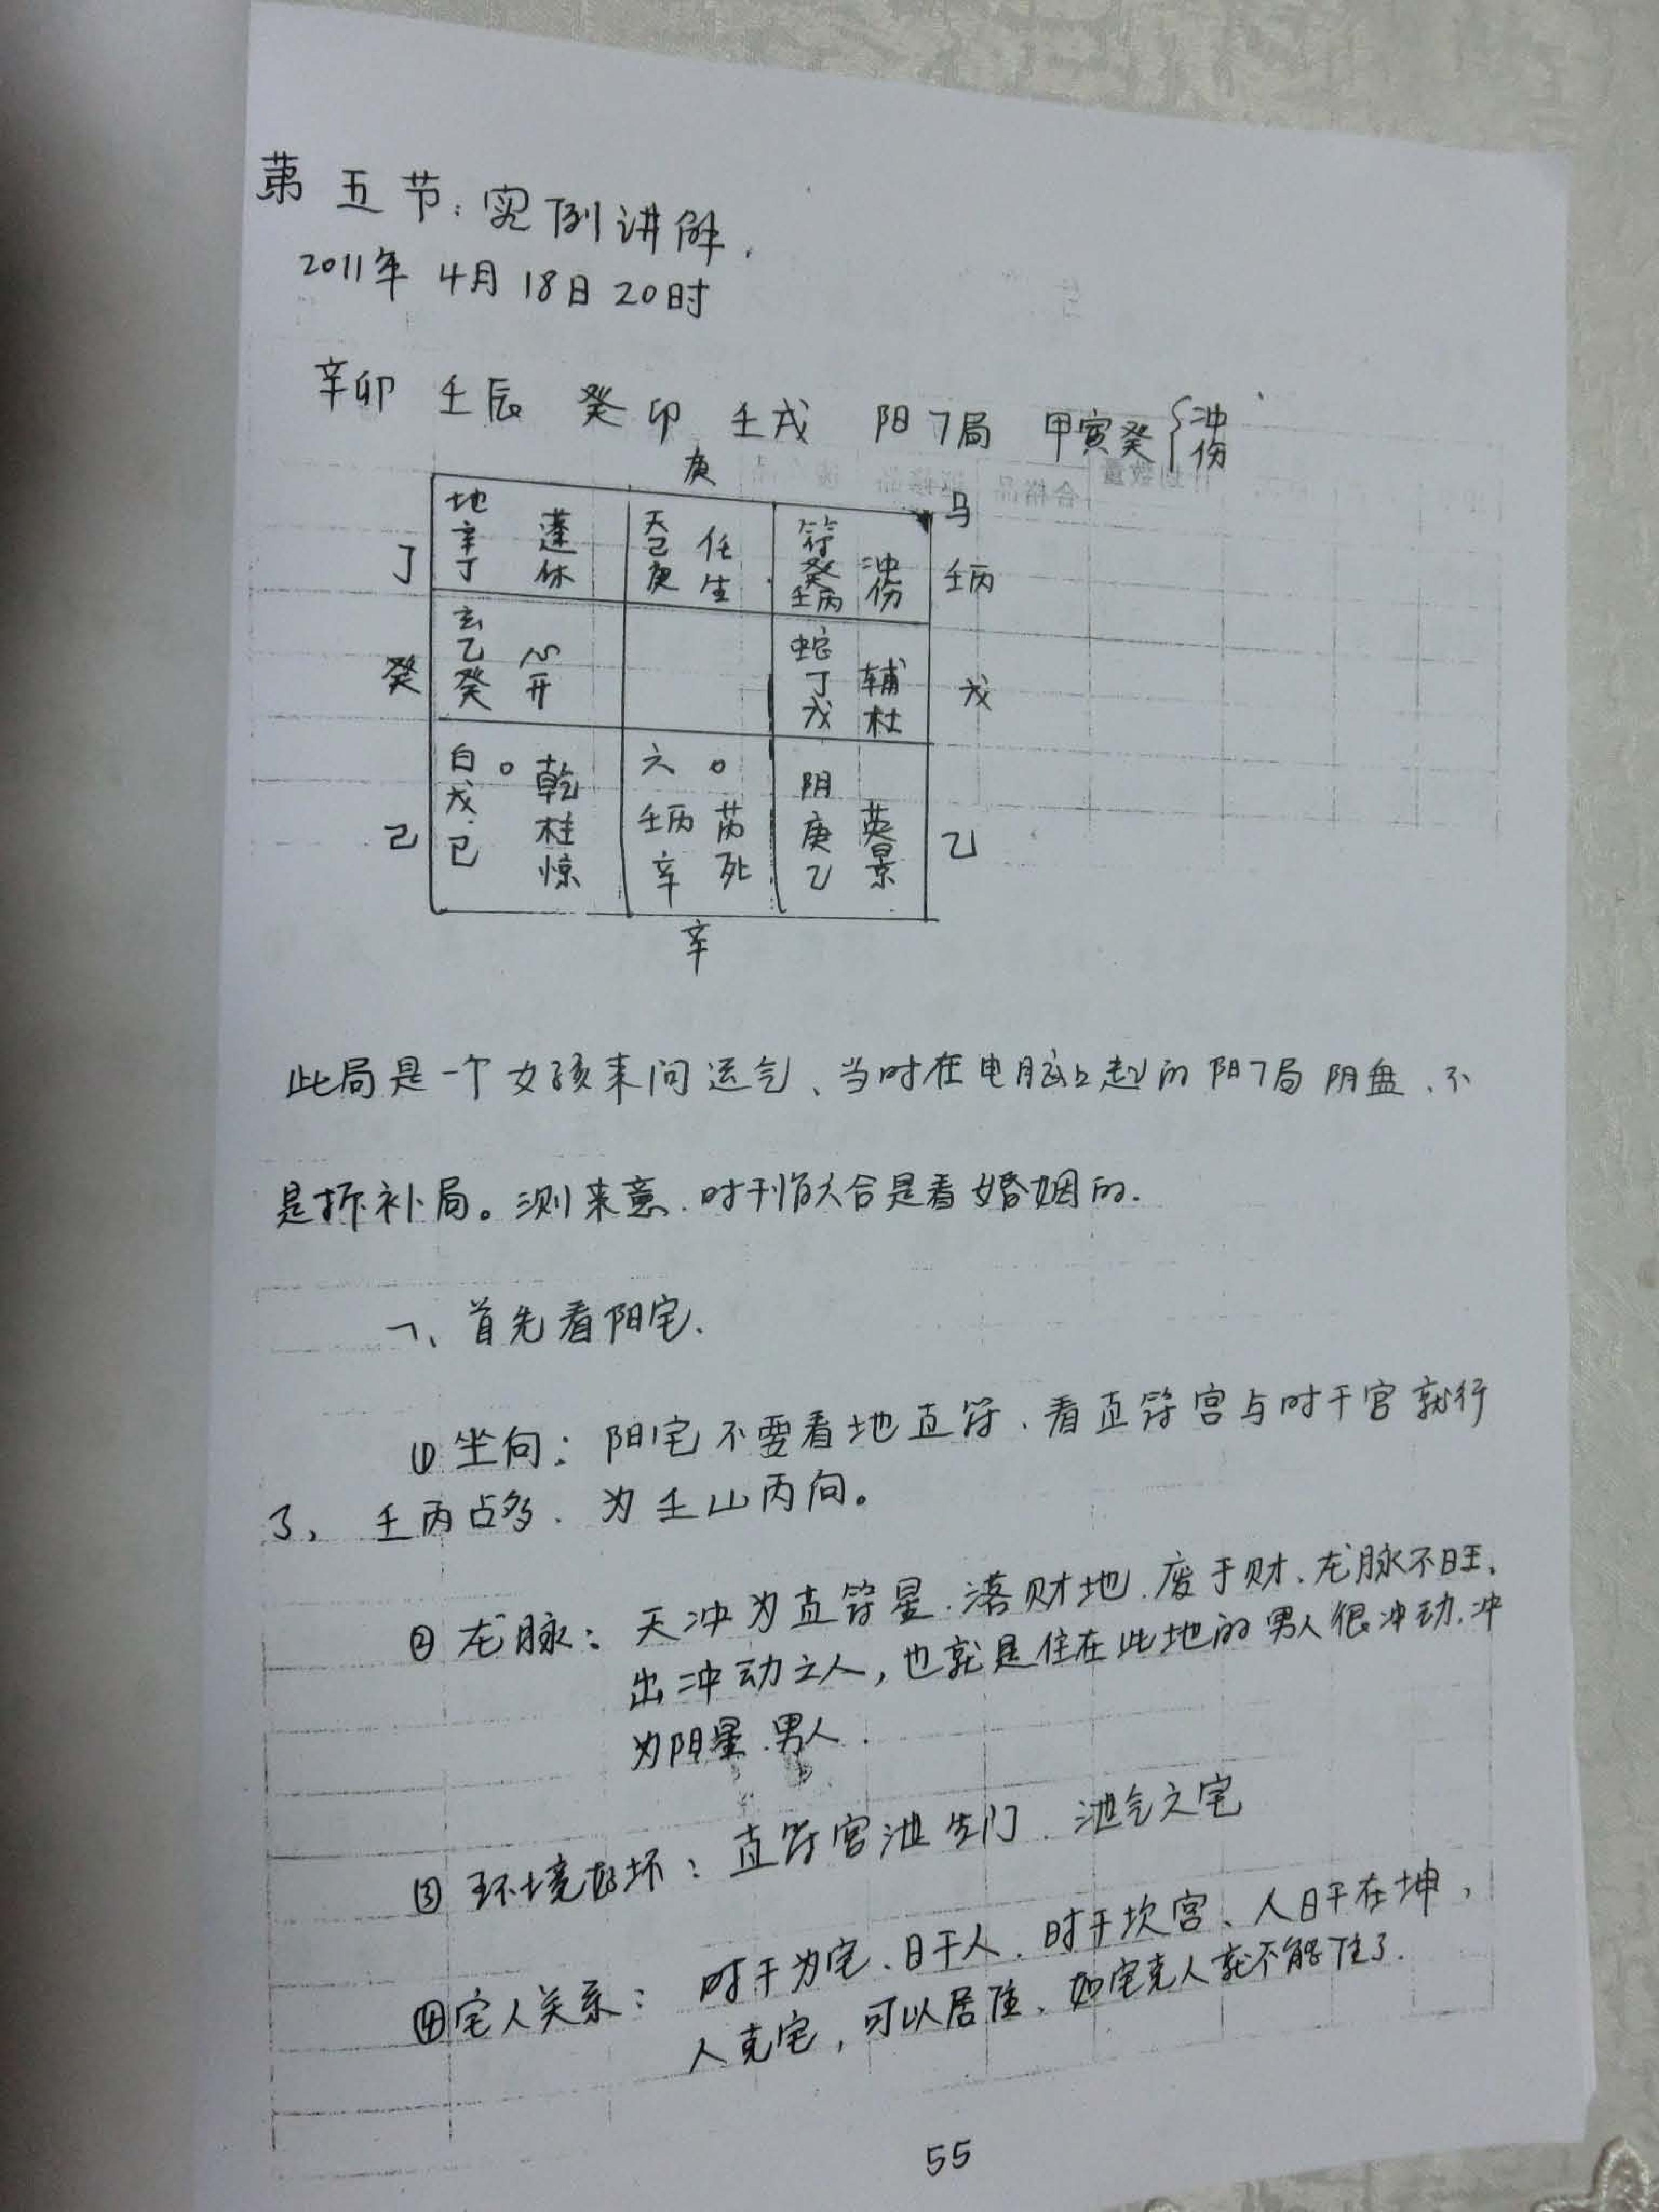 第五节：实例讲解.
2011年 4月18日20时
辛卯 壬辰 癸卯 壬戌 阳7局 甲寅癸{冲 伤
庚
马
丁 地 辛 丁 蓬 休 天 己 庚 任 生 符 癸 壬丙 冲 伤 壬丙
癸 玄 乙 癸 心 开 蛇 丁 戊 辅 杜 戊
己 白 戊 己 。 乾 柱 惊 六 。 壬丙 辛 芮 死 阴 庚 乙 英 景 乙
辛
此局是一个女孩来问运气、当时在电脑上起的阳7局阴盘、不
是拆补局。测来意.时干 六合是看婚姻的.
一、首先看阳宅.
① 坐向：阳宅不要看地直符、看直符宫与时干宫就行
了, 壬丙占多. 为壬山丙向。
② 龙脉：天冲为直符星.落财地.废于财.龙脉不旺、
出冲动之人，也就是住在此地的男人很冲动.冲
为阳星.男人.
③ 环境好坏：直符宫泄生门.泄气之宅
④宅人关系：时干为宅、日干人.时干坎宫、人日干在坤，
人克宅，可以居住、如宅克人就不能住了.
55